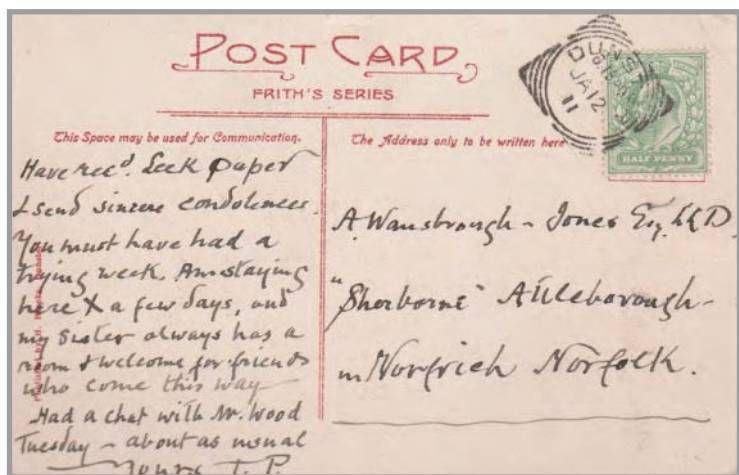 POST CARD
FRITH'S SERIES
This Space may be used for Communication.
The Address only to be written here
DUNST
JA 12
11
HALF PENNY
Have recd. Leek paper
& send sincere condolences.
You must have had a
trying week. Am staying
here X a few days, and
my sister always has a
room & welcome for friends
who come this way
Had a chat with Mr. Wood
Tuesday – about as usual
Yours T. P.
A. Wansbrough - Jones Esq. LLD
"Sherborne" Attleborough -
Norfolk.